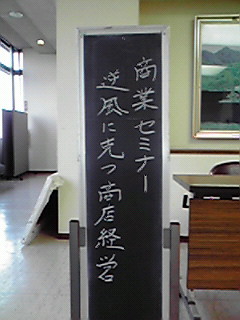 商業セミナー
逆風に克つ商店経営